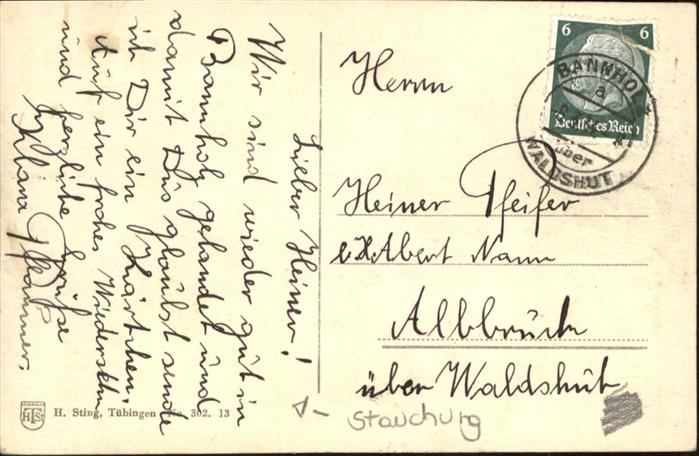 Lieber Heiner!
Wir sind wieder gut in
Bannholz gelandet und
damit Du's glaubst sende
ich Dir ein Kärtchen.
Auf ein frohes Wiedersehn
und herzliche Grüße
Klara
Herrn
Heiner Pfeifer
Albert Nann
Albbruck
über Waldshut
Stauchung
H. Sting, Tübingen No. 302. 13
HTS
6 6
Deutsches Reich
BANNHOLZ
a
über
WALDSHUT